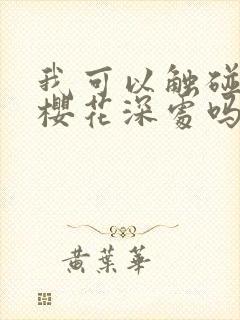 我可以触碰
樱花深处吗
黄叶華